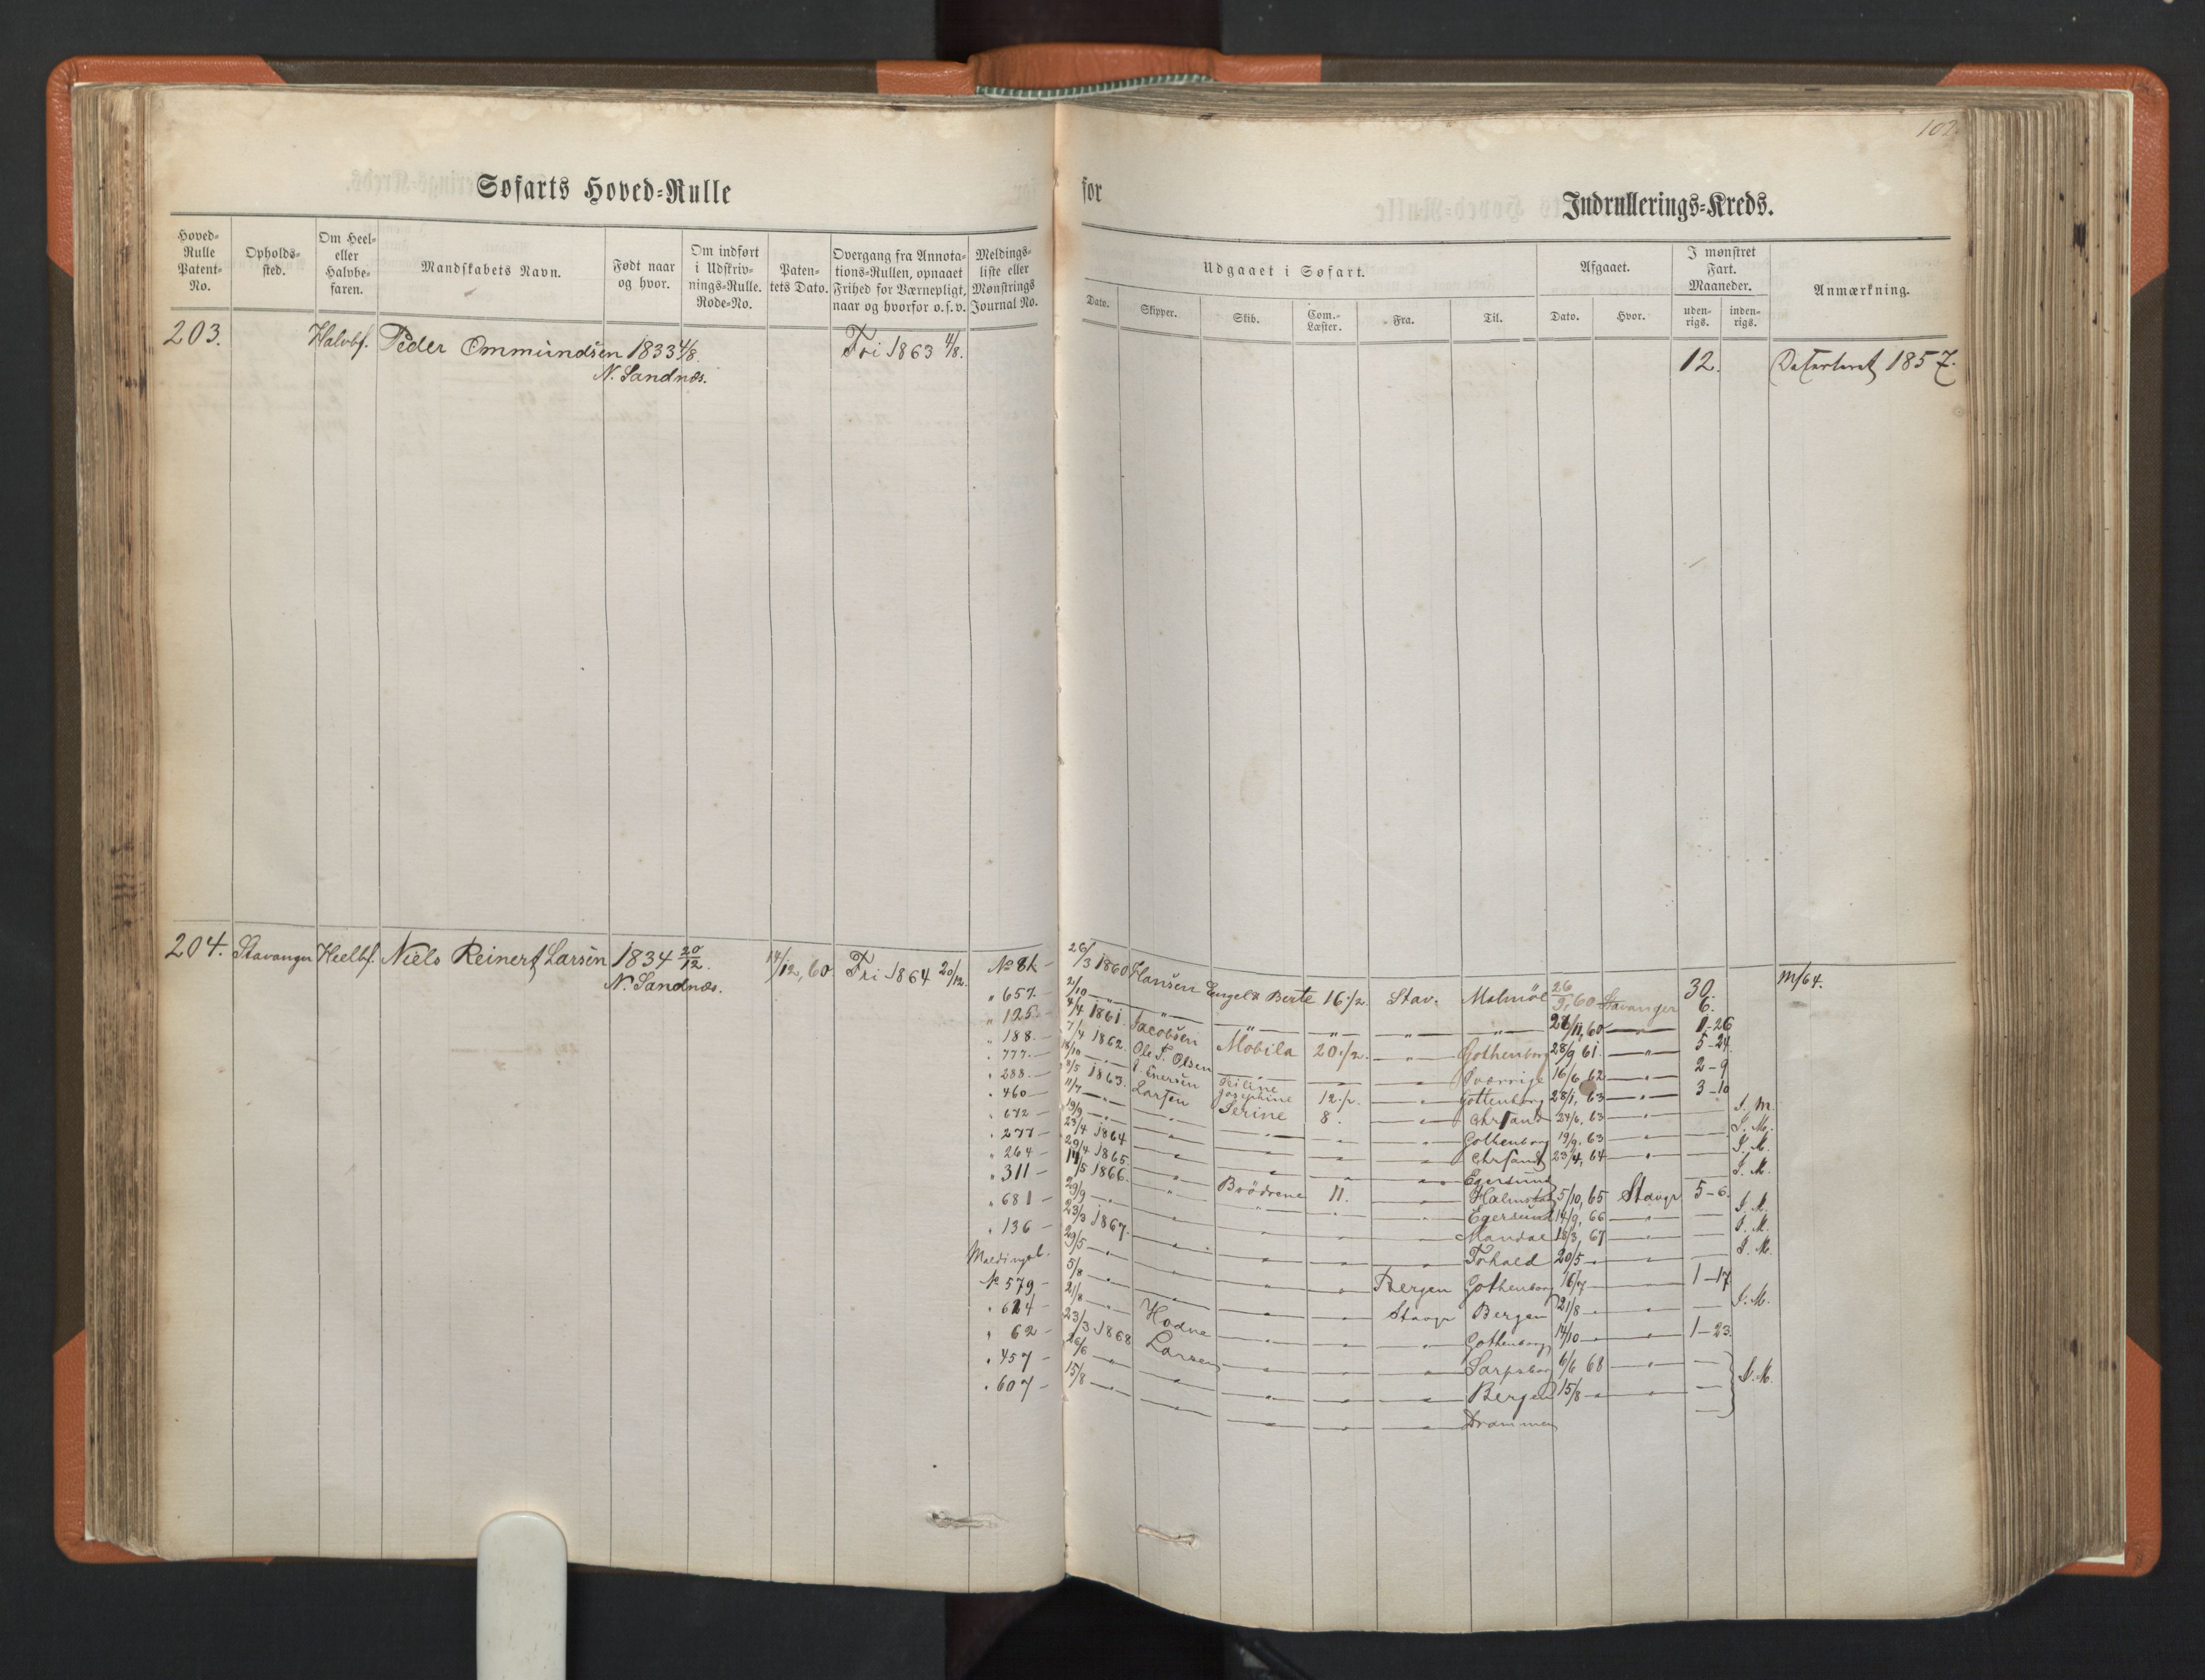 102
Søfarts Hoved-Rulle
for
Indrullerings-Kreds.
Hoved-Rulle Patent-No.
Opholds-sted.
Om Heel- eller Halvbe-faren.
Mandskabets Navn.
Født naar og hvor.
Om indført i Udskriv-nings-Rulle. Rode-No.
Paten-tets Dato.
Overgang fra Annota-tions-Rullen, opnaaet Frihed for Værnepligt, naar og hvorfor o.s.v.
Meldings-liste eller Mønstrings Journal No.
Udgaaet i Søfart.
Dato.
Skipper.
Skib.
Com.-Læster.
Fra.
Til.
Afgaaet.
Dato.
Hvor.
I mønstret Fart. Maaneder.
uden-rigs.
inden-rigs.
Anmærkning.
203. Halvbf. Peder Ommundsen 1833 4/8. Fri 1863 4/8. 12. 1857.
N. Sandnæs.
204. Stavanger Heelbf. Niels Reinert Larsen 1834 20/12. 14/12, 60 Fri 1864 20/12. No 81 - 26/3 1860 Hansen Engel Berte 16 1/2 Stav. Malmöe 26/9, 60 Stavanger 30. m/64.
N. Sandnæs.
6.
" 657. - 2/10 — " — " — " — " — " — 1-26
" 125. - 4/4 1861. Jacobsen Mobila 20 1/2. — " — Gothenborg 28/9 61. — " — 5-24.
" 188. - 7/4 1862. Ole T. Olsen — Sverrige 16/6 62 — " — 2-9
" 777. - 18/10 — Enersen 12 1/2. Gottenborg 28/1, 63 — " — 3-10
" 288 — 1863. Larsen Josephine Chrsand 24/6, 63 — S. M.
" 460 — 11/7 — " — Serine 8. — Gothenborg 19/9. 63 — S. M.
" 672 — 19/9 — " — Chrsand 23/4, 64 — S. M.
" 277 — 23/4 1864 — Egersund — S. M.
" 264 — 29/4 1865. — Brödrene 11. — Halmstad 5/10, 65 Stavgr 5-6.
" 311 — 14/5 1866. — Egersund 14/9, 66 — S. M.
" 681 — 29/9 — " — Mandal 18/3, 67 — S. M.
" 136 — 23/3 1867. — 20/5 — S. M.
29/5 — " — Bergen Gothenborg 16/7 — 1-17
No 579. - 5/8 — " — Stavgr Bergen 21/8 — S. M.
" 624 — 21/8 — " — Hodne — Gothenborg 14/10 — 1-23.
" 62 — 23/3 1868 Larsen — Sarpsborg 6/6 68 —
" 457 — 26/6 — " — Bergen 15/8 — S. M.
" 607 — 15/8 — " — Drammen —